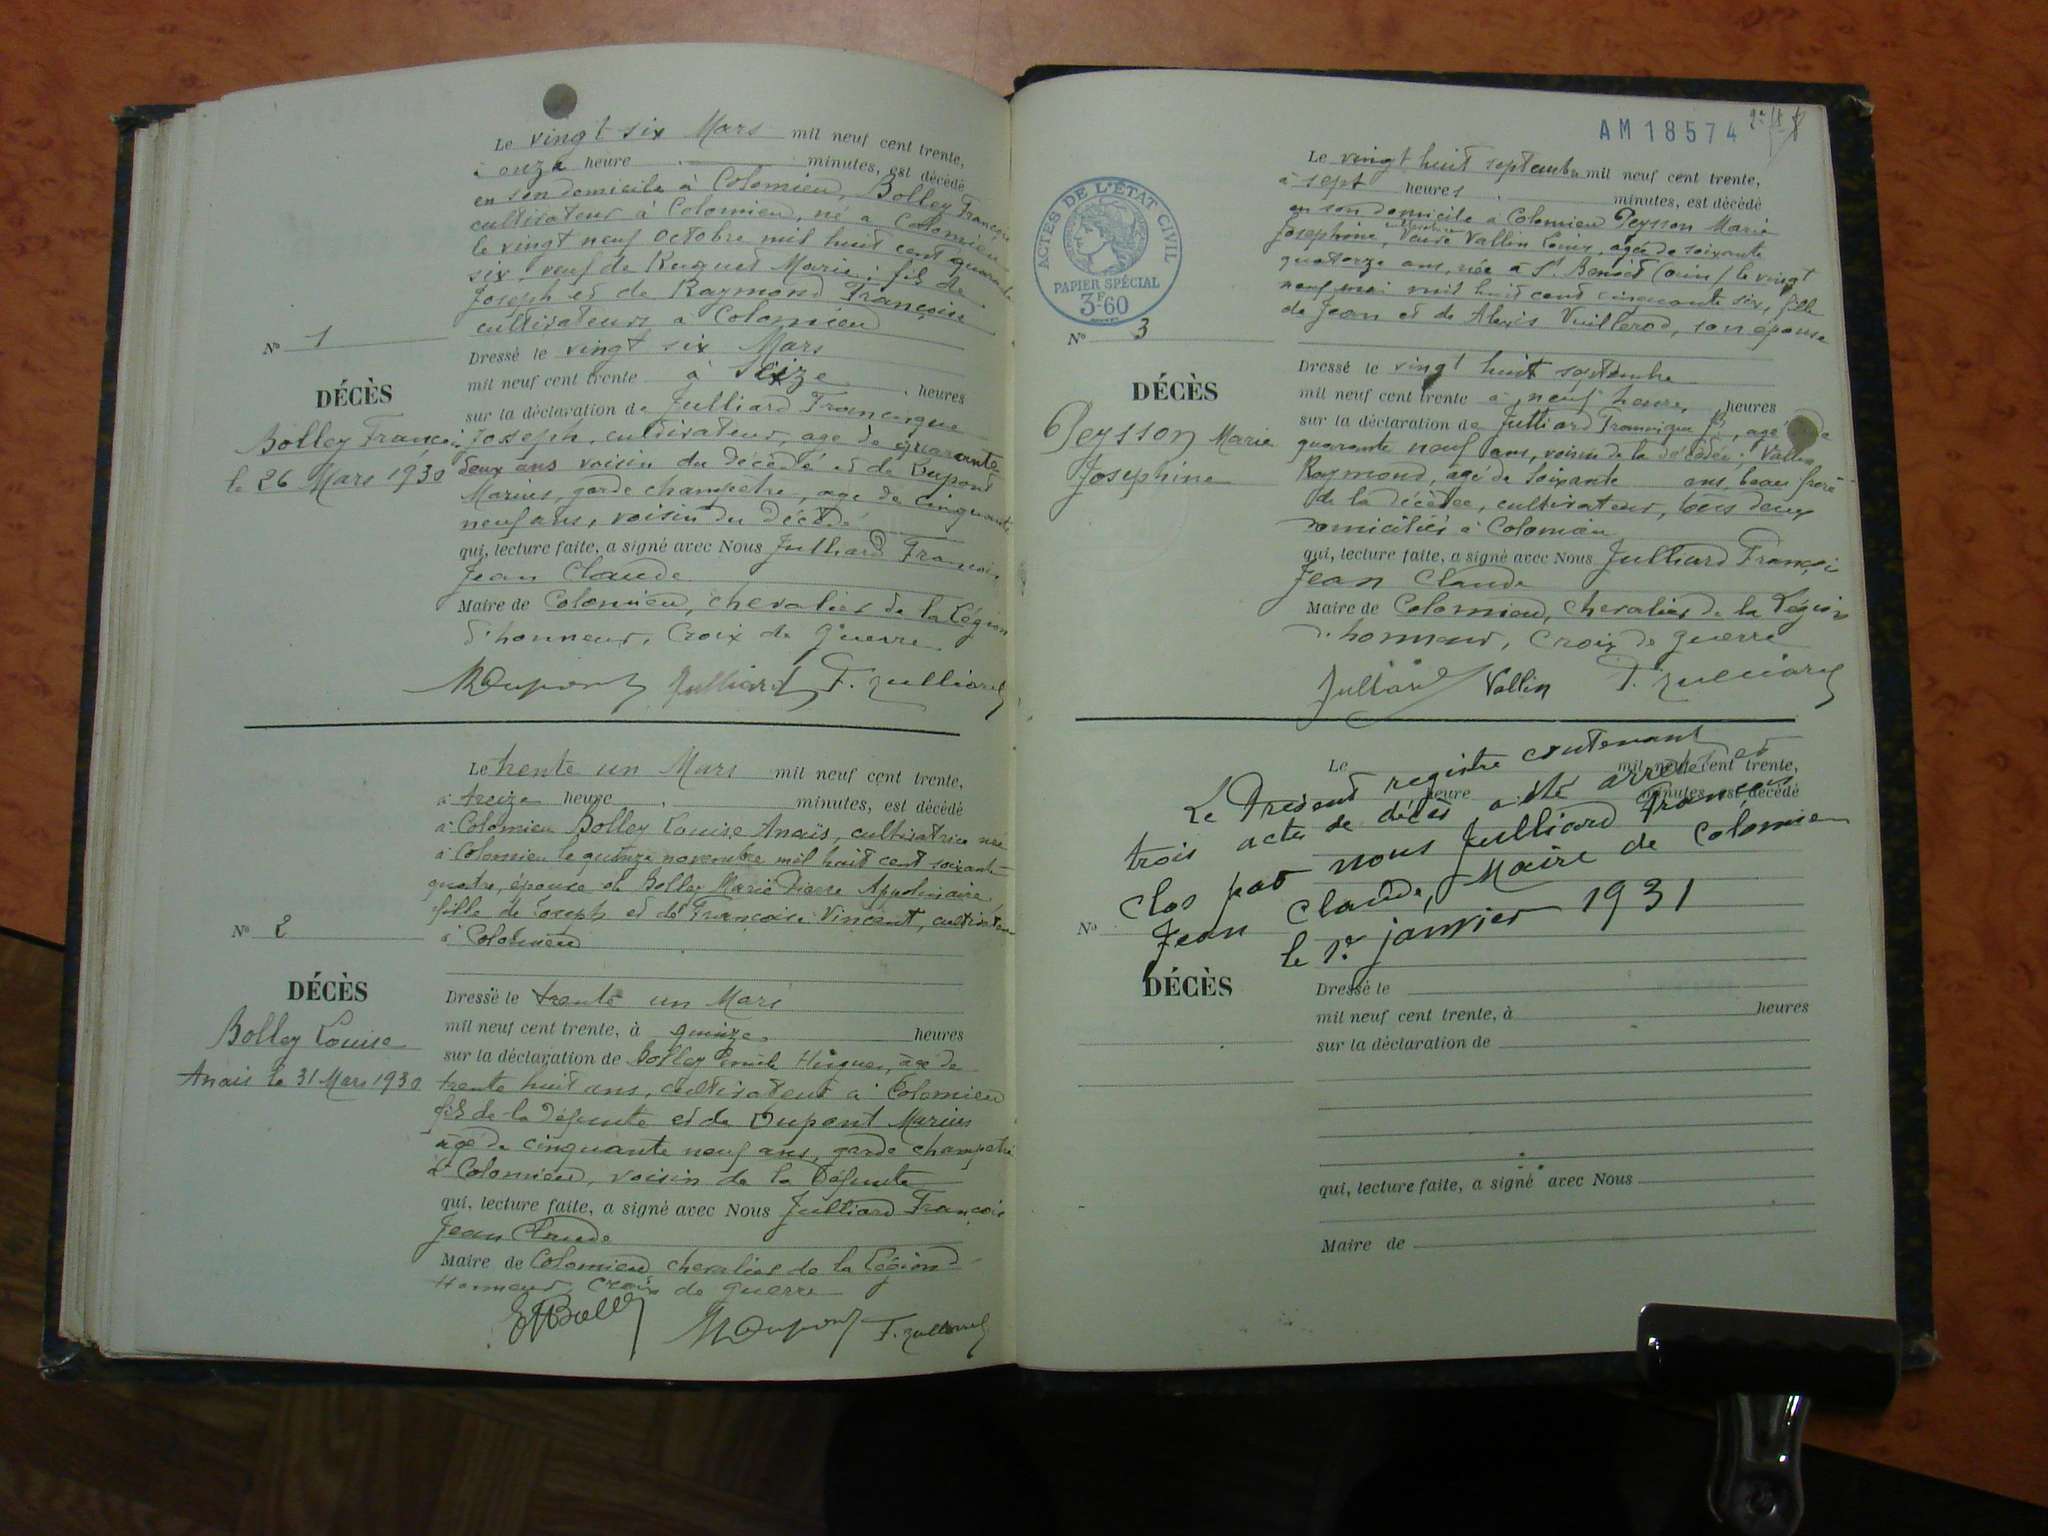 Le vingt six Mars mil neuf cent trente,
à onze heure minutes, est décédé
en son domicile à Colomieu, Bolley François
cultivateur à Colomieu, né a Colomieu
le vingt neuf octobre mil huit cent quarante
six, veuf de Marie, fils de
Joseph et de Raymond Françoise
cultivateurs a Colomieu
No 1
DÉCÈS
Bolley François
le 26 Mars 1930
Dressé le vingt six Mars
mil neuf cent trente à Seize heures
sur la déclaration de Julliard Francisque
Joseph, cultivateur, age de quarante
deux ans voisin du décédé et de Dupont
Marius, garde champetre, age de cinquante
neuf ans, voisin du décédé
qui, lecture faite, a signé avec Nous Julliard François
Jean Claude
Maire de Colomieu, chevalier de la Légion
d'honneur, Croix de Guerre
MDupont Julliard F. Julliard
Le trente un Mars mil neuf cent trente,
à treize heure minutes, est décédé
à Colomieu Bolley Louise Anaïs, cultivatrice née
à Colomieu le quinze novembre mil huit cent soixante
quatre, épouse de Bolley Marie Pierre Appolinaire
fille de Joseph et de Françoise Vincent, cultivateurs
à Colomieu
No 2
DÉCÈS
Bolley Louise
Anais le 31 Mars 1930
Dressé le trente un Mars
mil neuf cent trente, à quinze heures
sur la déclaration de Bolley Emile Hugues, âgé de
trente huit ans, cultivateur a Colomieu
fils de la défunte et de Dupont Marius
âgé de cinquante neuf ans, garde champetre
à Colomieu, voisin de la défunte
qui, lecture faite, a signé avec Nous Julliard François
Jean Claude
Maire de Colomieu chevalier de la Légion d'
Honneur, Croix de guerre
MDupont F. Julliard
AM 18574
ACTES DE L'ÉTAT CIVIL
PAPIER SPÉCIAL
3F60
Le vingt huit septembre mil neuf cent trente,
à sept heures minutes, est décédé
en son domicile à Colomieu Peysson Marie
Josephine, Veuve Vallin Louis, agée de soixante
quatorze ans, née à St Benoit (Ain) le vingt
neuf mai mil huit cent cinquante six, fille
de Jean et de Alexis Vuillerod, son épouse
No 3
DÉCÈS
Peysson Marie
Josephine
Dressé le vingt huit septembre
mil neuf cent trente à neuf heure, heures
sur la déclaration de Julliard Francisque, agé de
quarante neuf ans, voisin de la décédée; Vallin
Raymond, agé de Soixante ans, beau frère
de la décédée, cultivateur, tous deux
domiciliés à Colomieu
qui, lecture faite, a signé avec Nous Julliard François
Jean Claude
Maire de Colomieu, chevalier de la Légion
d'honneur, Croix de guerre
Julliard Vallin F. Julliard
Le mil neuf cent trente,
heure minutes, est décédé
Le Present registre contenant
trois actes de décès a été arreté et
clos par nous Julliard François
Jean Claude, Maire de Colomieu
le 1er janvier 1931
No
DÉCÈS
Dressé le
mil neuf cent trente, à heures
sur la déclaration de
qui, lecture faite, a signé avec Nous
Maire de